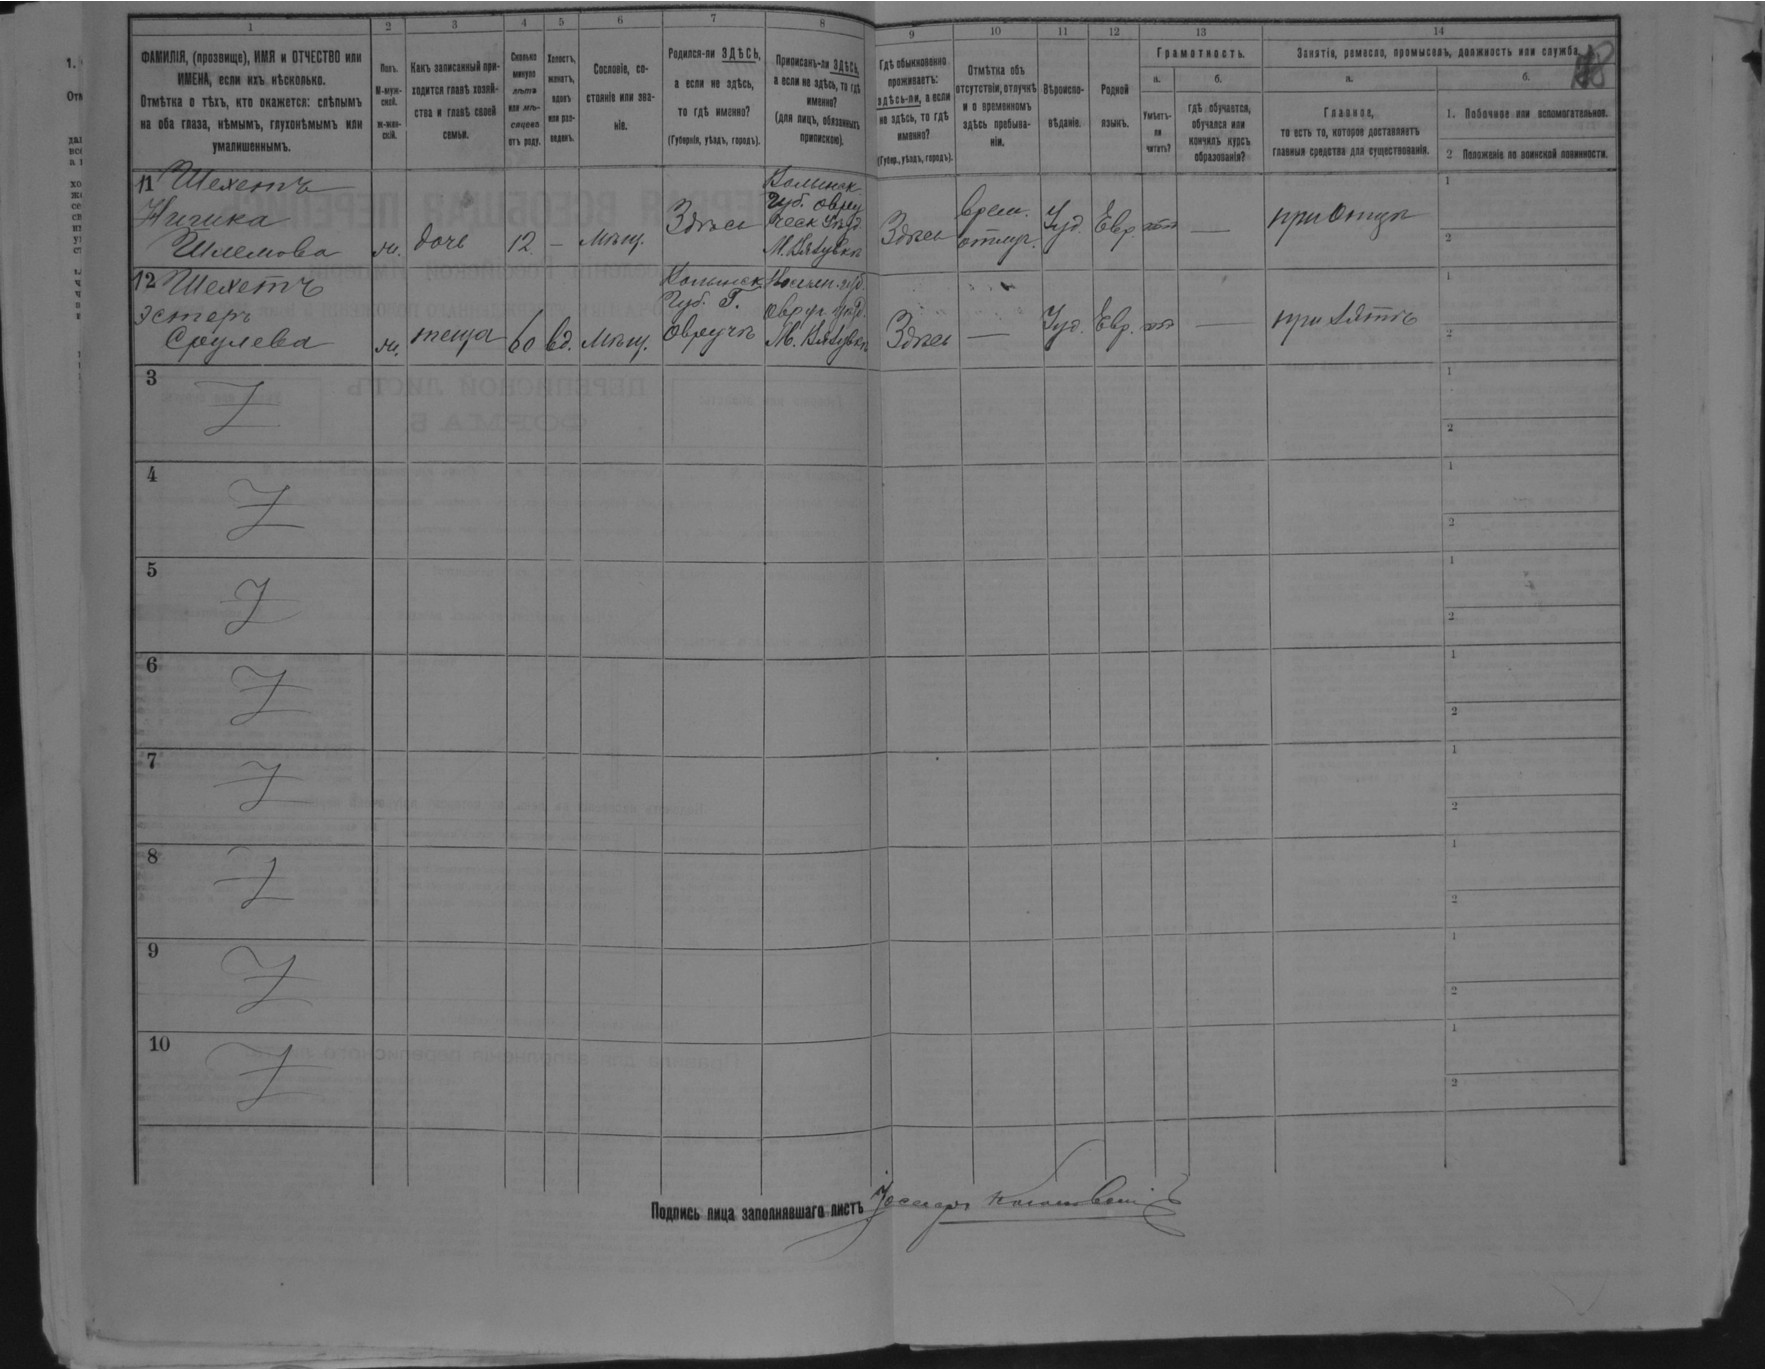 1 2 3 4 5 6 7 8 9 10 11 12 13 14
ФАМИЛІЯ, (прозвище), ИМЯ и ОТЧЕСТВО или
ИМЕНА, если ихъ нѣсколько.
Отмѣтка о тѣхъ, кто окажется: слѣпымъ
на оба глаза, нѣмымъ, глухонѣмымъ или
умалишеннымъ.
Полъ.
М-муж-
ской.
ж-жен-
скій.
Какъ записанный при-
ходится главѣ хозяй-
ства и главѣ своей
семьи.
Сколько
минуло
лѣтъ
или мѣ-
сяцевъ
отъ роду.
Холостъ,
женатъ,
вдовъ
или раз-
веденъ.
Сословіе, со-
стояніе или зва-
ніе.
Родился-ли ЗДѢСЬ,
а если не здѣсь,
то гдѣ именно?
(Губернія, уѣздъ, городъ).
Приписанъ-ли ЗДѢСЬ,
а если не здѣсь, то гдѣ
именно?
(для лицъ, обязанныхъ
припискою).
Гдѣ обыкновенно
проживаетъ:
здѣсь-ли, а если
не здѣсь, то гдѣ
именно?
(Губер., уѣздъ, городъ).
Отмѣтка объ
отсутствіи, отлучкѣ
и о временномъ
здѣсь пребыва-
ніи.
Вѣроиспо-
вѣданіе.
Родной
языкъ.
Грамотность.
а.
Умѣетъ-
ли
читать?
б.
гдѣ обучается,
обучался или
кончилъ курсъ
образованія?
Занятіе, ремесло, промыселъ, должность или служба.
а.
Главное,
то есть то, которое доставляетъ
главныя средства для существованія.
б.
1. Побочное или вспомогательное.
2 Положеніе по воинской повинности.
11 Шехетъ
Шлемова
ж. дочь 12 — мѣщ. Здѣсь
Волынск.
Губ. Овру
ческ. Уѣзд.
Здѣсь
врем.
отлуч.
Іуд. Евр. нѣтъ — при отцѣ
1
2
12 Шехетъ
Эстеръ
Срулева
ж. теща 60 вд. мѣщ.
Волынск.
Губ. Г.
Овручъ
Волын. губ.
Овруч. уѣзд.
Здѣсь — Іуд. Евр. нѣтъ — при зятѣ
1
2
3
1
2
4
1
2
5
1
2
6
1
2
7
1
2
8
1
2
9
1
2
10
1
2
Подпись лица заполнявшаго листъ